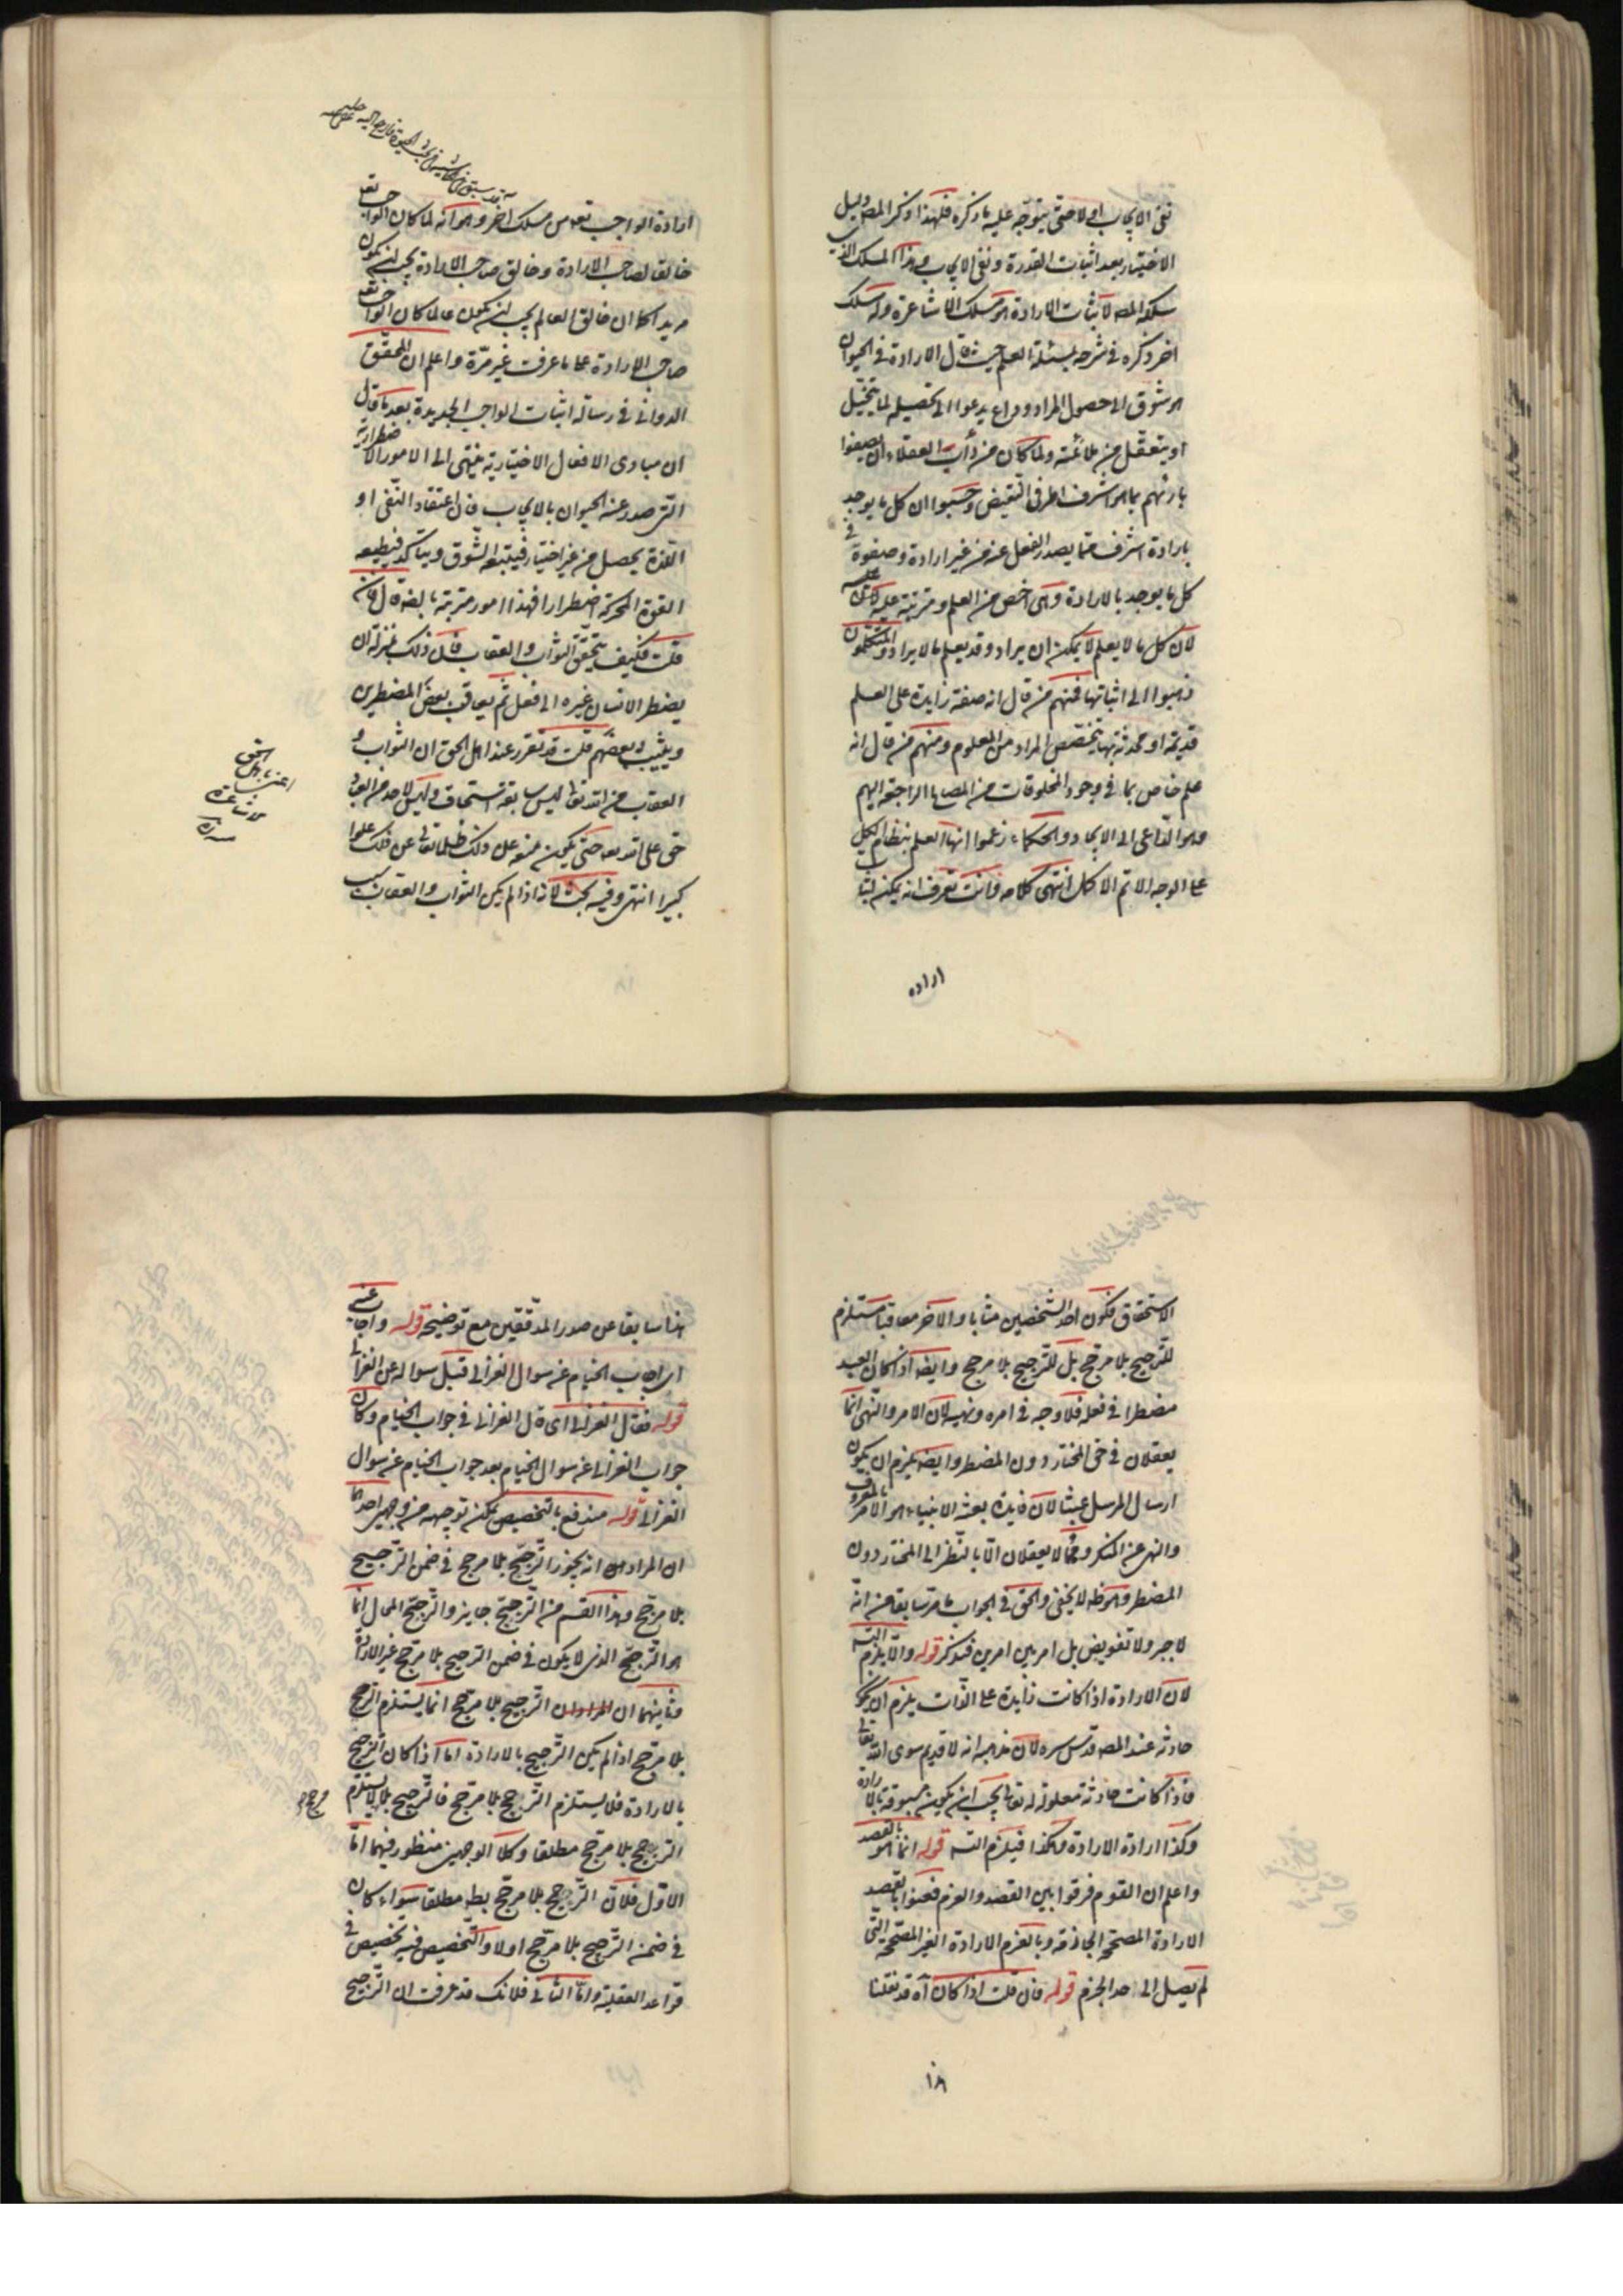 نفى الايجاب اولا حتى يتوجّه عليه ما ذكره فلهذا ذكر المصـ دليل
الاختيار بعد اثبات القدرة ونفى الايجاب وهذا المسلك الذى
سلكه المصـ لاثبات الارادة هو مسلك الاشاعرة وله مسلك
اخر ذكره فى شرحه لمسئلة العلم حيث قال الارادة فى الحيوان
هو شوق الى حصول المراد وداع يدعوا الى تحصيله لما يتخيّل
او يتعقّل من ملائمته ولما كان من دأب العقلاء ان يصفوا
بارئهم بما هو اشرف طرفى النقيض وحسبوا ان كل ما يوجد
بارادة اشرف مما يصدر الفعل عنه من غير ارادة وصفوه فى
كل ما يوجد بالارادة وهى اخص من العلم ومترتبة عليه
لان كل ما لا يعلم لا يمكن ان يراد وقد يعلم ما لا يراد والمتكلمون
ذهبوا الى اثباتها فمنهم من قال انه صفة زايدة على العلم
قديمة او محدثة بها يتخصص المراد من المعلوم ومنهم من قال انه
علم خاص بما فى وجود المخلوقات من المصالح الراجعة اليهم
وهو الدّاعى الى الايجاد والحكماء زعموا انها العلم بنظام الكل
على الوجه الاتم الاكمل انتهى كلامه وانت تعرف انه يمكن اثبات
اراده
ارادة الواجب تعـ من مسلك اخر وهو انه لما كان الواجب تعـ
خالقا لصاحب الارادة وخالق صاحب الارادة يجب ان يكون
مريدا كما ان خالق العالم يجب ان يكون عالما كان الواجب تعـ
صاحب الارادة على ما عرفت غير مرّة واعلم ان المحقّق
الدوانى فى رسالة اثبات الواجب الجديدة بعد ما قال
ان مبادى الافعال الاختيارية ينتهى الى الامور الاضطرارية
التى صدر عنه الحيوان بالايجاب فان اعتقاد النفى او
اللذة يحصل من غير اختيار فيتبعه الشّوق ويتاكد فيطيعه
القوة المحركة اضطرارا فهذا امور مترتبة بالضـ قال فان
قلت فكيف يتحقّق الثواب والعقاب فان ذلك بمنزلة ان
يضطر الانسان غيره الى فعل ثم يعاقب بعض المضطرين
ويثيب بعضهم قلت قد تقرر عند اهل الحق ان الثواب و
العقاب من الله تعالى ليس سابقة استحقاق وليس لاحد من العباد
حق على الله تعـ حتى يكون منعه عن ذلك ظلما تعالى عن ذلك علوا
كبيرا انتهى وفيه بحث لانه اذا لم يكن الثواب والعقاب بسبب
اعنى باهل الحق
الاشاعرة
الاستحقاق فكون احد الشخصين مثابا والاخر معاقبا مستلزم
للترجيح بلا مرجّح بل للترجّح بلا مرجح وايضا اذا كان العبد
مضطرا فى فعله فلا وجه فى امره ونهيه لان الامر والنهى انّما
يعقلان فى حق المختار دون المضطر وايضا يلزم ان يكون
ارسال المرسل عبثا لان فايدة بعثة الانبياء هو الامر بالمعروف
والنهى عن المنكر وهما لا يعقلان الّا بالنظر الى المختار دون
المضطر وهو ظـ لا يخفى والحق فى الجواب ما مرّ سابقا من انّه
لا جبر ولا تفويض بل امر بين امرين فتذكر قوله والّا يلزم التسـ
لان الارادة اذا كانت زايدة على الذّات يلزم ان يكون
حادثة عند المصـ قدّس سره لان مذهبه انه لا قديم سوى الله تعالى
فاذا كانت حادثة معلولة له تعالى يجب ان يكون مسبوقة بالارادة
وكذا ارادة الارادة وهكذا فيلزم التسـ قوله انما هو بالقصد
واعلم ان القوم فرقوا بين القصد والعزم فعنوا بالقصد
الارادة المصمّمة الجازمة وبالعزم الارادة الغير المصمّمة التى
لم يصل الى حد الجزم قوله فان قلت اذا كان آه قد نقلنا
١٨
هذا سابقا عن صدر المدقّقين مع توضيحه قوله واجاب عنه
اى اجاب الخيام عن سوال الغزالى قبل سواله عن الغزالى
قوله فقال الغزالى اى قال الغزالى فى جواب الخيام وكان
جواب الغزالى عن سوال الخيام بعد جواب الخيام عن سوال
الغزالى قوله مندفع بالتخصيص يمكن توجيهه من وجهين احدهما
ان المراد انه يجوز الترجّح بلا مرجح فى ضمن الترجيح
بلا مرجّح وهذا القسم من الترجّح جايز والترجّح المحال انّما
هو الترجّح الذى لا يكون فى ضمن الترجيح بلا مرجّح غير الارادة
وثانيهما ان الترجيح بلا مرجّح انما يستلزم الترجّح
بلا مرجّح اذا لم يكن الترجيح بالارادة امّا اذا كان الترجيح
بالارادة فلا يستلزم الترجّح بلا مرجّح فالترجيح بلا يستلزم
مرجح لا
الترجّح بلا مرجّح مطلقا وكلا الوجهين منظور فيهما امّا
الاوّل فلانّ الترجّح بلا مرجّح بطـ مطلقا سواء كان
فى ضمن الترجيح بلا مرجّح اولا والتخصيص فيه تخصيص فى
قواعد العقلية وامّا الثانى فلانك قد عرفت ان الترجيح